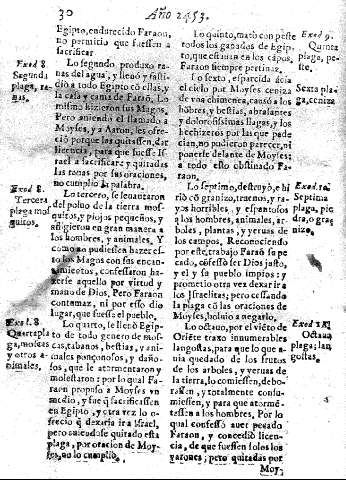 30
Año 2453.
Egipto, endurecido Faraon,
no permitio que fuessen a
sacrificar.
Lo segundo, produxo ra
nas del agua, y llenó, y fasti-
dió a todo Egipto cõ ellas, y
la casa y cama de Faraõ. Lo
mismo hizieron sus Magos.
Pero auiendo el llamado a
Moyses, y a Aaron, les ofre-
ció porque las quitassen, dar
licencia, para que fuesse Is-
rael a sacrificar y quitadas
las ranas por sus oraciones,
no cumplio la palabra.
Lo tercero, se leuantaron
del poluo de la tierra mos-
quitos, y piojos pequeños, y
afligieron en gran manera a
los hombres, y animales. Y
como no pudiessen hazer es-
to los Magos con sus encan-
tamientos, confessaron ha-
zerse aquello por virtud y
mano de Dios. Pero Faraon
contumaz, ni por esto dio
lugar, que fuesse el pueblo.
Lo quarto, se llenó Egip-
to de todo genero de mos-
cas, tabanos, bestias, y ani-
males ponçoñosos, y daño-
sos, que le atormentaron y
molestaron: por lo qual Fa-
raon propuso a Moyses vn
medio, y fue q̃ sacrificassen
en Egipto, y otra vez lo o-
frecio q̃ dexaria ir a Israel,
pero auiendose quitado esta
plaga, por oracion de Moy-
ses, no lo cumplio.
Exod 8.
Segunda
plaga, ra-
nas.
Exod. 8.
Tercera
plaga mos
quitos.
Exod. 8
Quarta pla
ga, moscas
y otros a-
nimales.
Lo quinto, mató con peste
todos los ganados de Egip-
to, que estauan en los cãpos,
Faraon siempre pertinaz.
Lo sexto, esparcida azia
el cielo por Moyses ceniza
de vna chimenea, causó a los
hõbres, y bestias, abrasantes
y dolorosissimas llagas, y los
hechizeros por las que pade
cian, no pudieron parecer, ni
ponerse delante de Moyses;
a todo esto obstinado Fa-
raon.
Lo septimo, destruyó, e hi
rió cõ granizo, truenos, y ra-
yos horribles, y espantosos
a los hombres, animales, ar-
boles, plantas, y yeruas de
los campos. Reconociendo
por esto, trabajo Faraõ su pe
cado, cõfessó ser Dios justo,
y el y su pueblo impios; y
prometio otra vez dexar ir a
los Israelitas; pero cessando
la plaga cõ las oraciones de
Moyses, boluio a negarlo.
Lo octauo, por el viẽto de
Oriẽte traxo innumerables
langostas, para que lo que a-
uia quedado de los frutos
de los arboles, y yeruas de
la tierra, lo comiessen, debo-
rassen, y totalmente consu-
miessen, y para que atormẽ-
tassen a los hombres. Por lo
qual confessó auer pecado
Faraon, y concedió licen-
cia, de que fuessen solos los
varones; pero quitadas por
Moy-
Exod 9.
Quinta
plaga, pe-
ste.
Sexta pla-
ga, ceniza
Exod. 10.
Septima
plaga, pie
dra, o gra
nizo.
Exod 18.
Octaua
plaga; lan
gostas.